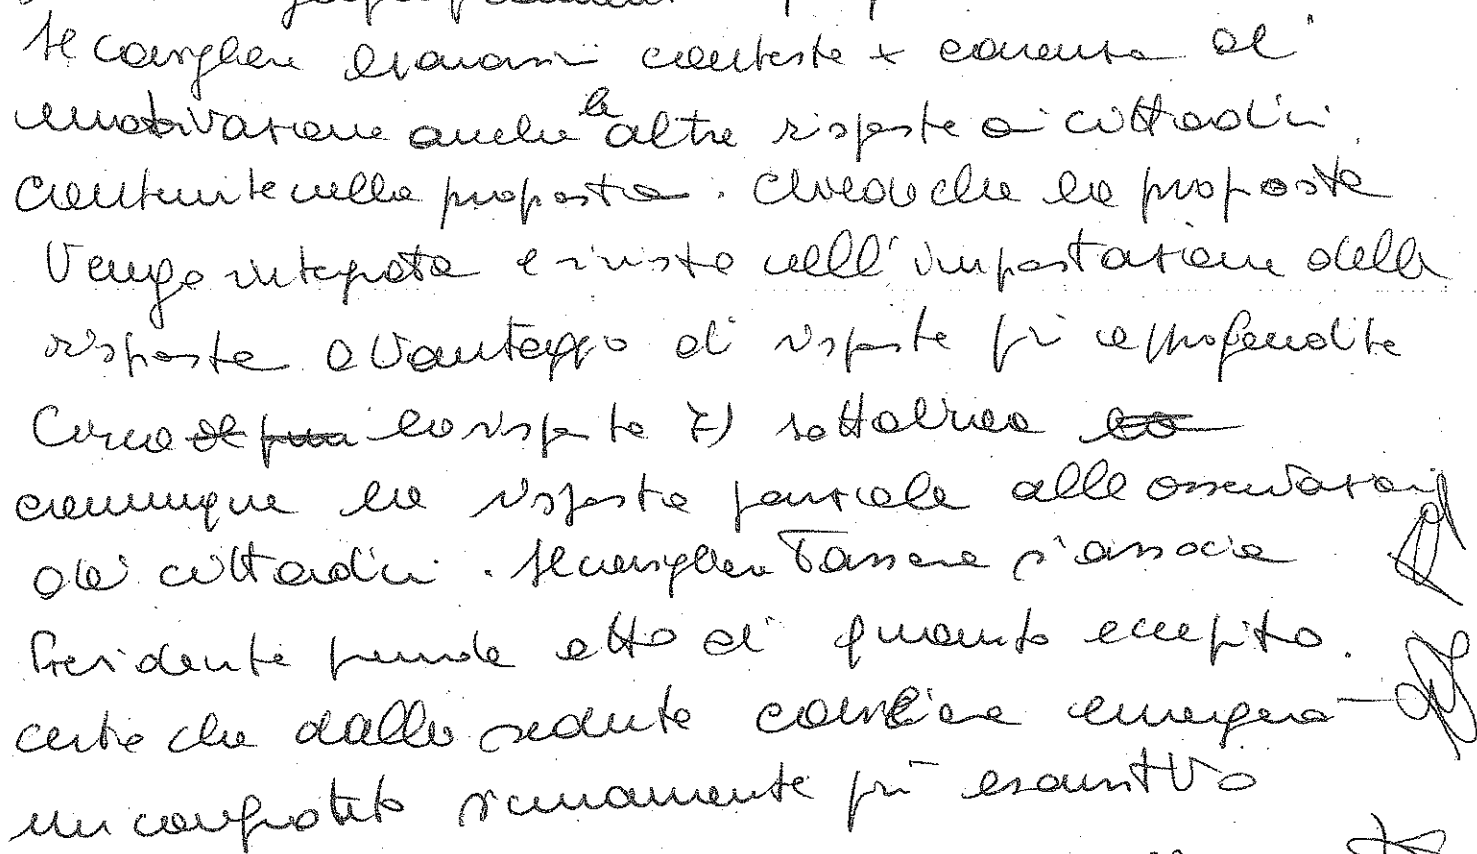 Il consigliere contesta x carenza di
motivazione anche le altre risposte ai cittadini
contenute nella proposta. Chiede che la proposta
venga integrata e rivista nell'impostazione delle
risposte a vantaggio di risposte più approfondite
Circa la risposta 7) sottolinea
comunque la risposta parziale alle osservazioni
dei cittadini. Il consigliere Tassone s'associa
Presidente prende atto di quanto eccepito.
certa che dalla seduta emergerà
un sicuramente più esaustivo